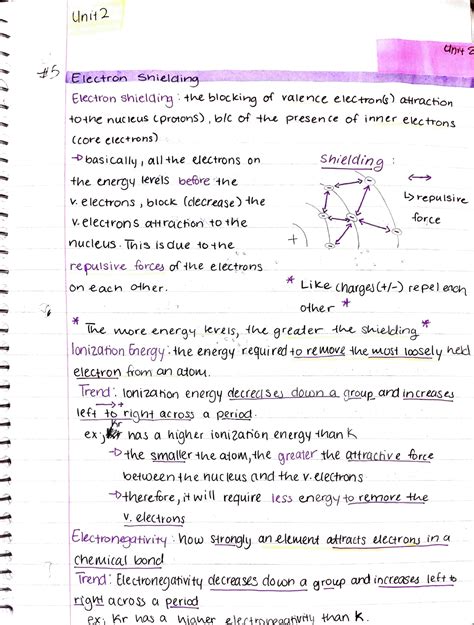 Unit 2
Unit 2
#5 Electron Shielding
Electron shielding : the blocking of valence electron(s) attraction
to the nucleus (protons), b/c of the presence of inner electrons
(core electrons)
→ basically, all the electrons on
the energy levels before the
v. electrons, block (decrease) the
v. electrons attraction to the
nucleus. This is due to the
repulsive forces of the electrons
on each other.
Shielding :
↔
↳ repulsive
force
+
* Like charges (+/-) repel each
other *
* The more energy levels, the greater the shielding *
Ionization Energy : the energy required to remove the most loosely held
electron from an atom.
Trend : Ionization energy decreases down a group and increases
left to right across a period.
ex: Kr has a higher ionization energy than K
→ the smaller the atom, the greater the attractive force
between the nucleus and the v. electrons
→ therefore, it will require less energy to remove the
v. electrons
Electronegativity : how strongly an element attracts electrons in a
chemical bond
Trend : Electronegativity decreases down a group and increases left to
right across a period
ex: Kr has a higher electronegativity than K.